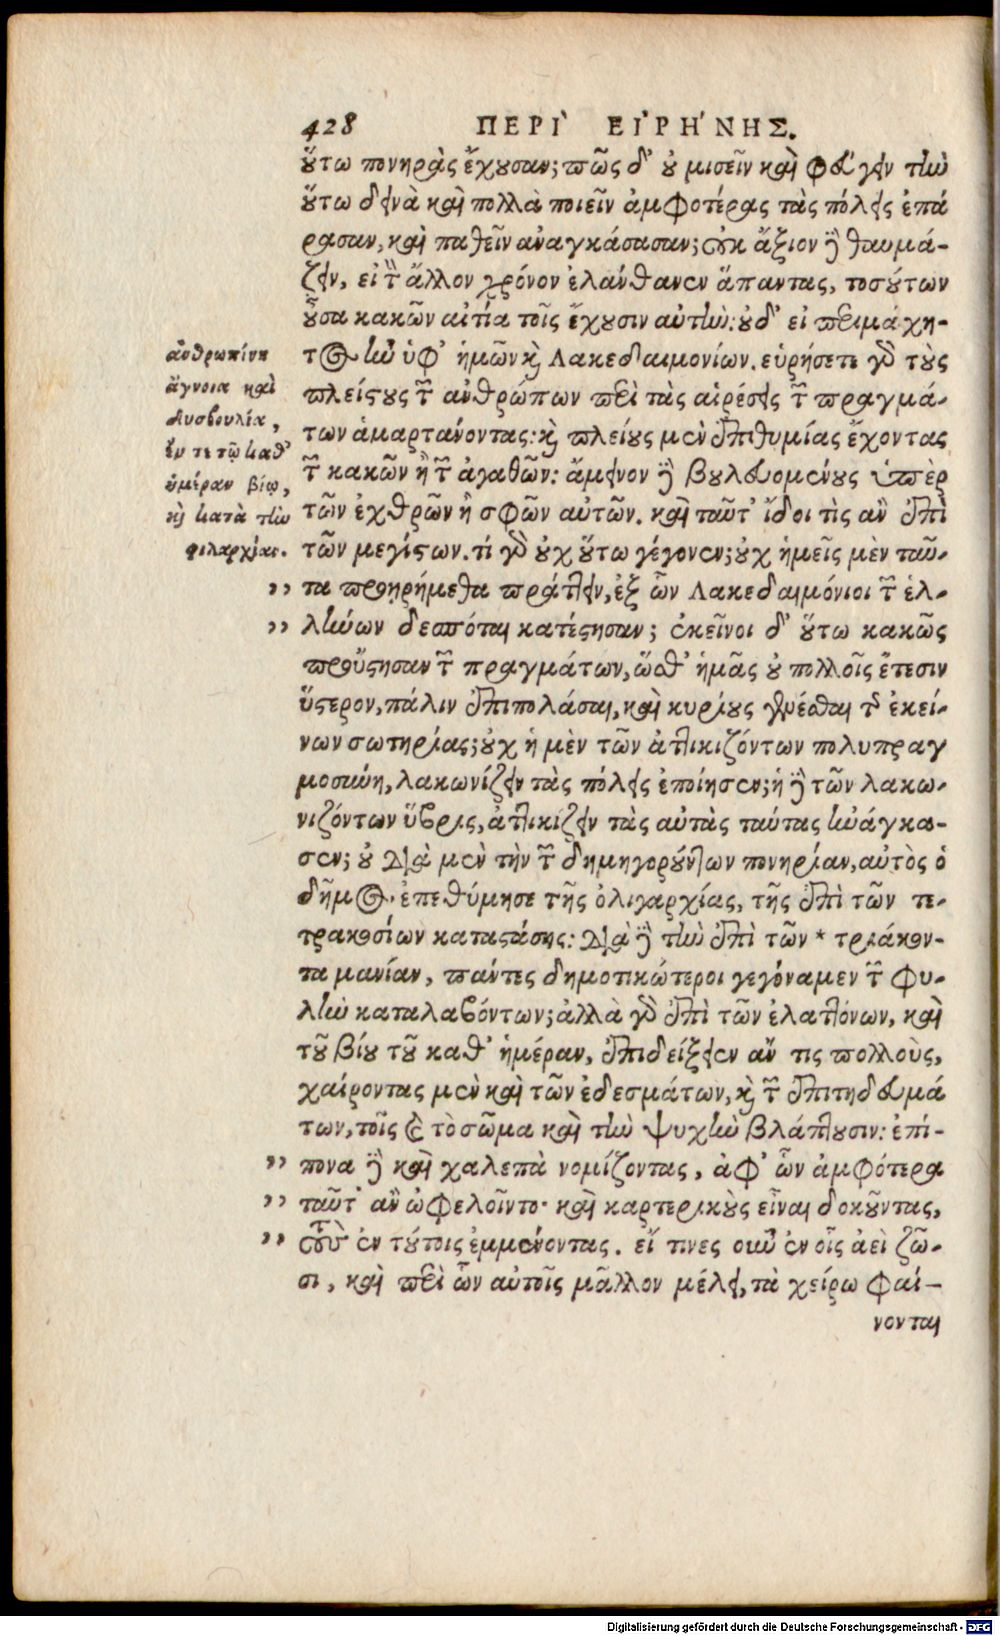 428 ΠΕΡΙ` ΕΙ'ΡΗ'ΝΗΣ.
οὕτω πονηρὰς ἔχουσαν; πῶς δ' οὐ μισεῖν καὶ φεύγειν τὴν
οὕτω δεινὰ καὶ πολλὰ ποιεῖν ἀμφοτέρας τὰς πόλεις ἐπά
ρασαν, καὶ παθεῖν ἀναγκάσασαν; οὐκ ἄξιον δὲ θαυμά-
ζειν, εἰ τὸν ἄλλον χρόνον ἐλάνθανεν ἅπαντας, τοσούτων
οὖσα κακῶν αἰτία τοῖς ἔχουσιν αὐτήν: οὐδ' εἰ περιμάχη-
τος ἦν ὑφ' ἡμῶν καὶ Λακεδαιμονίων. εὑρήσετε γὰρ τοὺς
πλείστους τῶν ἀνθρώπων περὶ τὰς αἱρέσεις τῶν πραγμά-
των ἁμαρτάνοντας: καὶ πλείους μὲν ἐπιθυμίας ἔχοντας
τῶν κακῶν ἢ τῶν ἀγαθῶν: ἄμεινον δὲ βουλευομένους ὑπὲρ
τῶν ἐχθρῶν ἢ σφῶν αὐτῶν. καὶ ταῦτ' ἴδοι τὶς ἂν ἐπὶ
τῶν μεγίστων. τί γὰρ οὐχ οὕτω γέγονεν; οὐχ ἡμεῖς μὲν ταῦ-
τα προῃρήμεθα πράττειν, ἐξ ὧν Λακεδαιμόνιοι τῶν ἑλ-
λήνων δεσπόται κατέστησαν; ἐκεῖνοι δ' οὕτω κακῶς
προὔστησαν τῶν πραγμάτων, ὥσθ' ἡμᾶς οὐ πολλοῖς ἔτεσιν
ὕστερον, πάλιν ἐπιπολάσαι, καὶ κυρίους γενέσθαι τῆς ἐκεί-
νων σωτηρίας; οὐχ ἡ μὲν τῶν ἀττικιζόντων πολυπραγ
μοσύνη, λακωνίζειν τὰς πόλεις ἐποίησεν; ἡ δὲ τῶν λακω-
νιζόντων ὕβρις, ἀττικίζειν τὰς αὐτὰς ταύτας ἠνάγκα-
σεν; οὐ διὰ μὲν τὴν τῶν δημηγορούντων πονηρίαν, αὐτὸς ὁ
δῆμος ἐπεθύμησε τῆς ὀλιγαρχίας, τῆς ἐπὶ τῶν τε-
τρακοσίων καταστάσης: διὰ δὲ τὴν ἐπὶ τῶν * τριάκον-
τα μανίαν, πάντες δημοτικώτεροι γεγόναμεν τῶν φυ-
λὴν καταλαβόντων; ἀλλὰ γὰρ ἐπὶ τῶν ἐλαττόνων, καὶ
τοῦ βίου τοῦ καθ' ἡμέραν, ἐπιδείξειεν ἄν τις πολλοὺς,
χαίροντας μὲν καὶ τῶν ἐδεσμάτων, καὶ τῶν ἐπιτηδευμά
των, τοῖς καὶ τὸ σῶμα καὶ τὴν ψυχὴν βλάπτουσιν: ἐπί-
πονα δὲ καὶ χαλεπὰ νομίζοντας, ἀφ' ὧν ἀμφότερα
ταῦτ' ἂν ὠφελοῖντο· καὶ καρτερικοὺς εἶναι δοκοῦντας,
τοὺς ἐν τούτοις ἐμμένοντας. εἴ τινες οὖν ἐν οἷς ἀεὶ ζῶ-
σι, καὶ περὶ ὧν αὐτοῖς μᾶλλον μέλει, τὰ χείρω φαί-
νονται
ἀνθρωπίνη
ἄγνοια καὶ
δυσβουλία,
ἔν τε τῷ καθ'
ἡμέραν βίῳ,
καὶ κατὰ τὴν
φιλαρχίαν.
,,
,,
,,
,,
,,
Digitalisierung gefördert durch die Deutsche Forschungsgemeinschaft - DFG